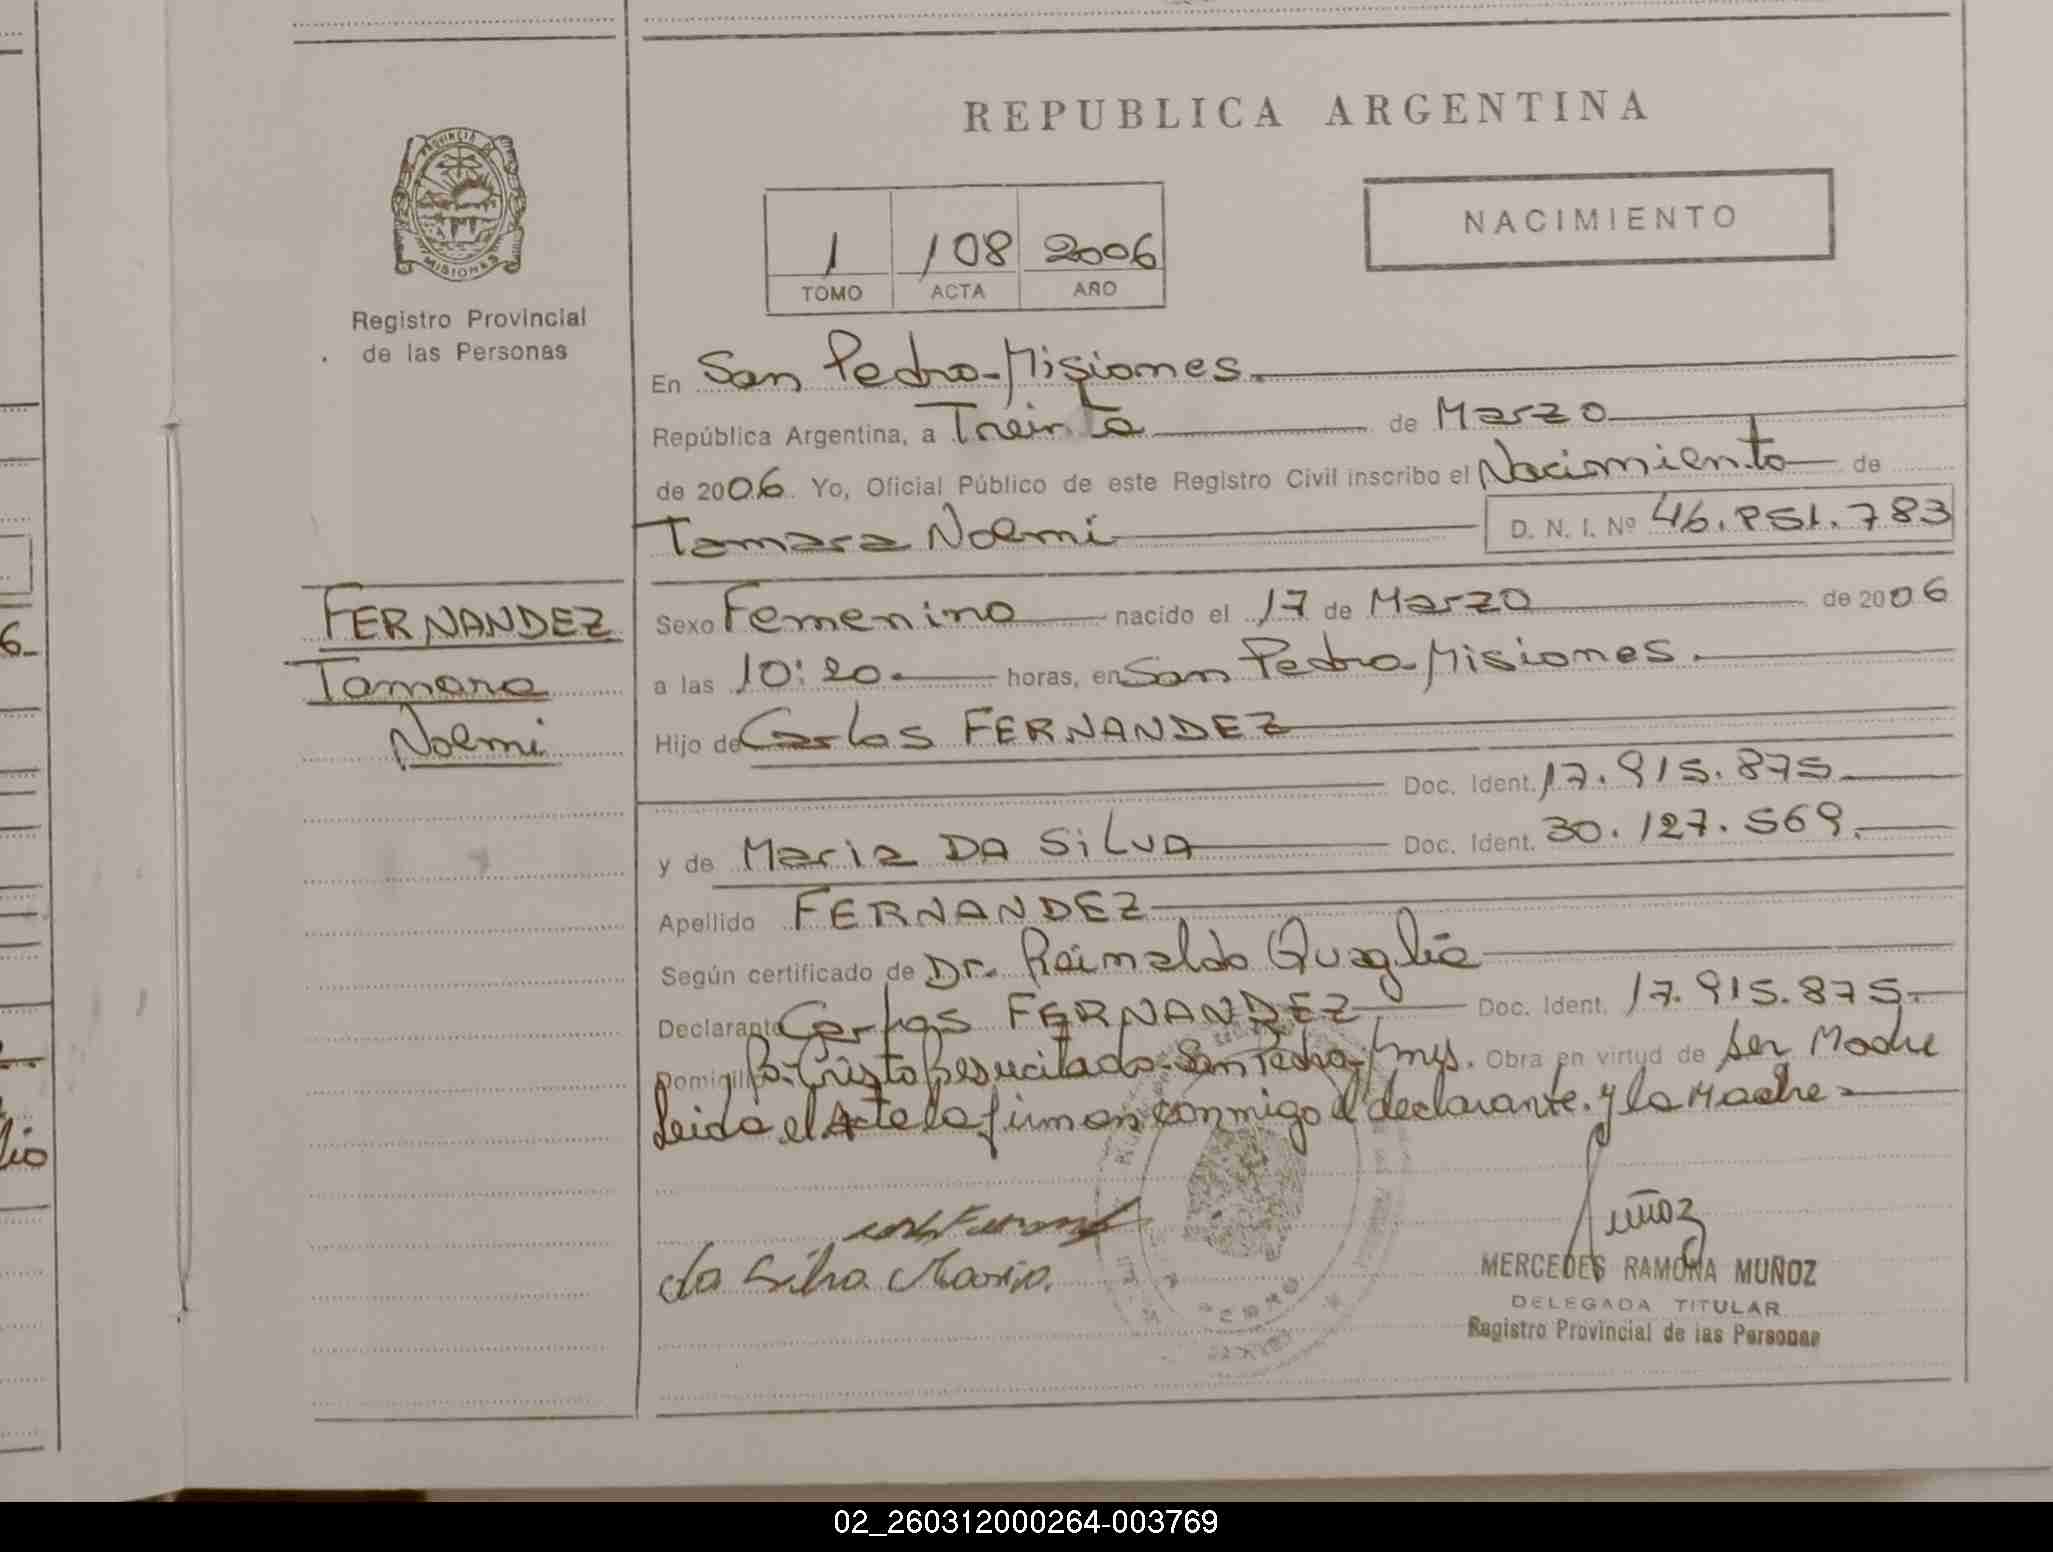 REPUBLICA ARGENTINA
NACIMIENTO
1 108 2006
TOMO ACTA AÑO
PROVINCIA DE MISIONES
Registro Provincial
de las Personas
En San Pedro-Misiones.
República Argentina, a Treinta de Marzo
de 2006. Yo, Oficial Público de este Registro Civil inscribo el Nacimiento de
Tamara Noemi D. N. I. Nº 46.851.783
FERNANDEZ
Tamara
Noemi
Sexo Femenino nacido el 17 de Marzo de 2006
a las 10:20. horas, en San Pedro Misiones.
Hijo de Carlos FERNANDEZ
Doc. Ident. 17.915.875
y de Maria DA SILVA Doc. Ident. 30.127.569.
Apellido FERNANDEZ
Según certificado de Dr. Reinaldo Quaglia
Declarante Carlos FERNANDEZ Doc. Ident. 17.915.875.
Domicilio Bo. Cristo Resucitado-San Pedro-Mnes. Obra en virtud de Ser Madre
Leida el Acta la firman conmigo el declarante. y la Madre
da Silva Maria.
Muñoz
MERCEDES RAMONA MUÑOZ
DELEGADA TITULAR
Registro Provincial de las Personas
02_260312000264-003769